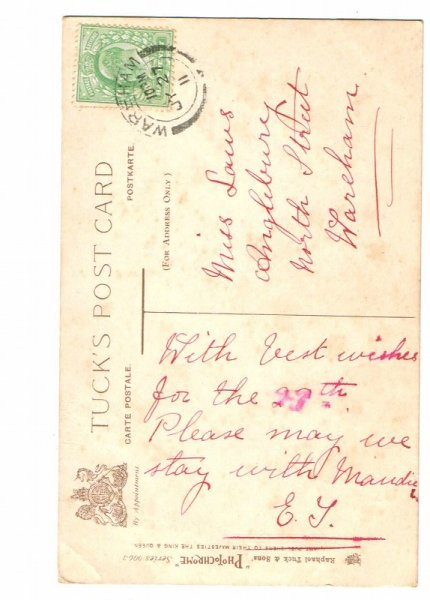 TUCK'S POST CARD
CARTE POSTALE.
POSTKARTE.
(FOR ADDRESS ONLY)
WAREHAM
27
11
Miss Laws
Anglebury
North Street
Wareham
With best wishes
for the 29th
Please may we
stay with Maudie
E. J.
By Appointment.
Raphael Tuck & Sons' "PHOTOCHROME"
TO THEIR MAJESTIES THE KING & QUEEN